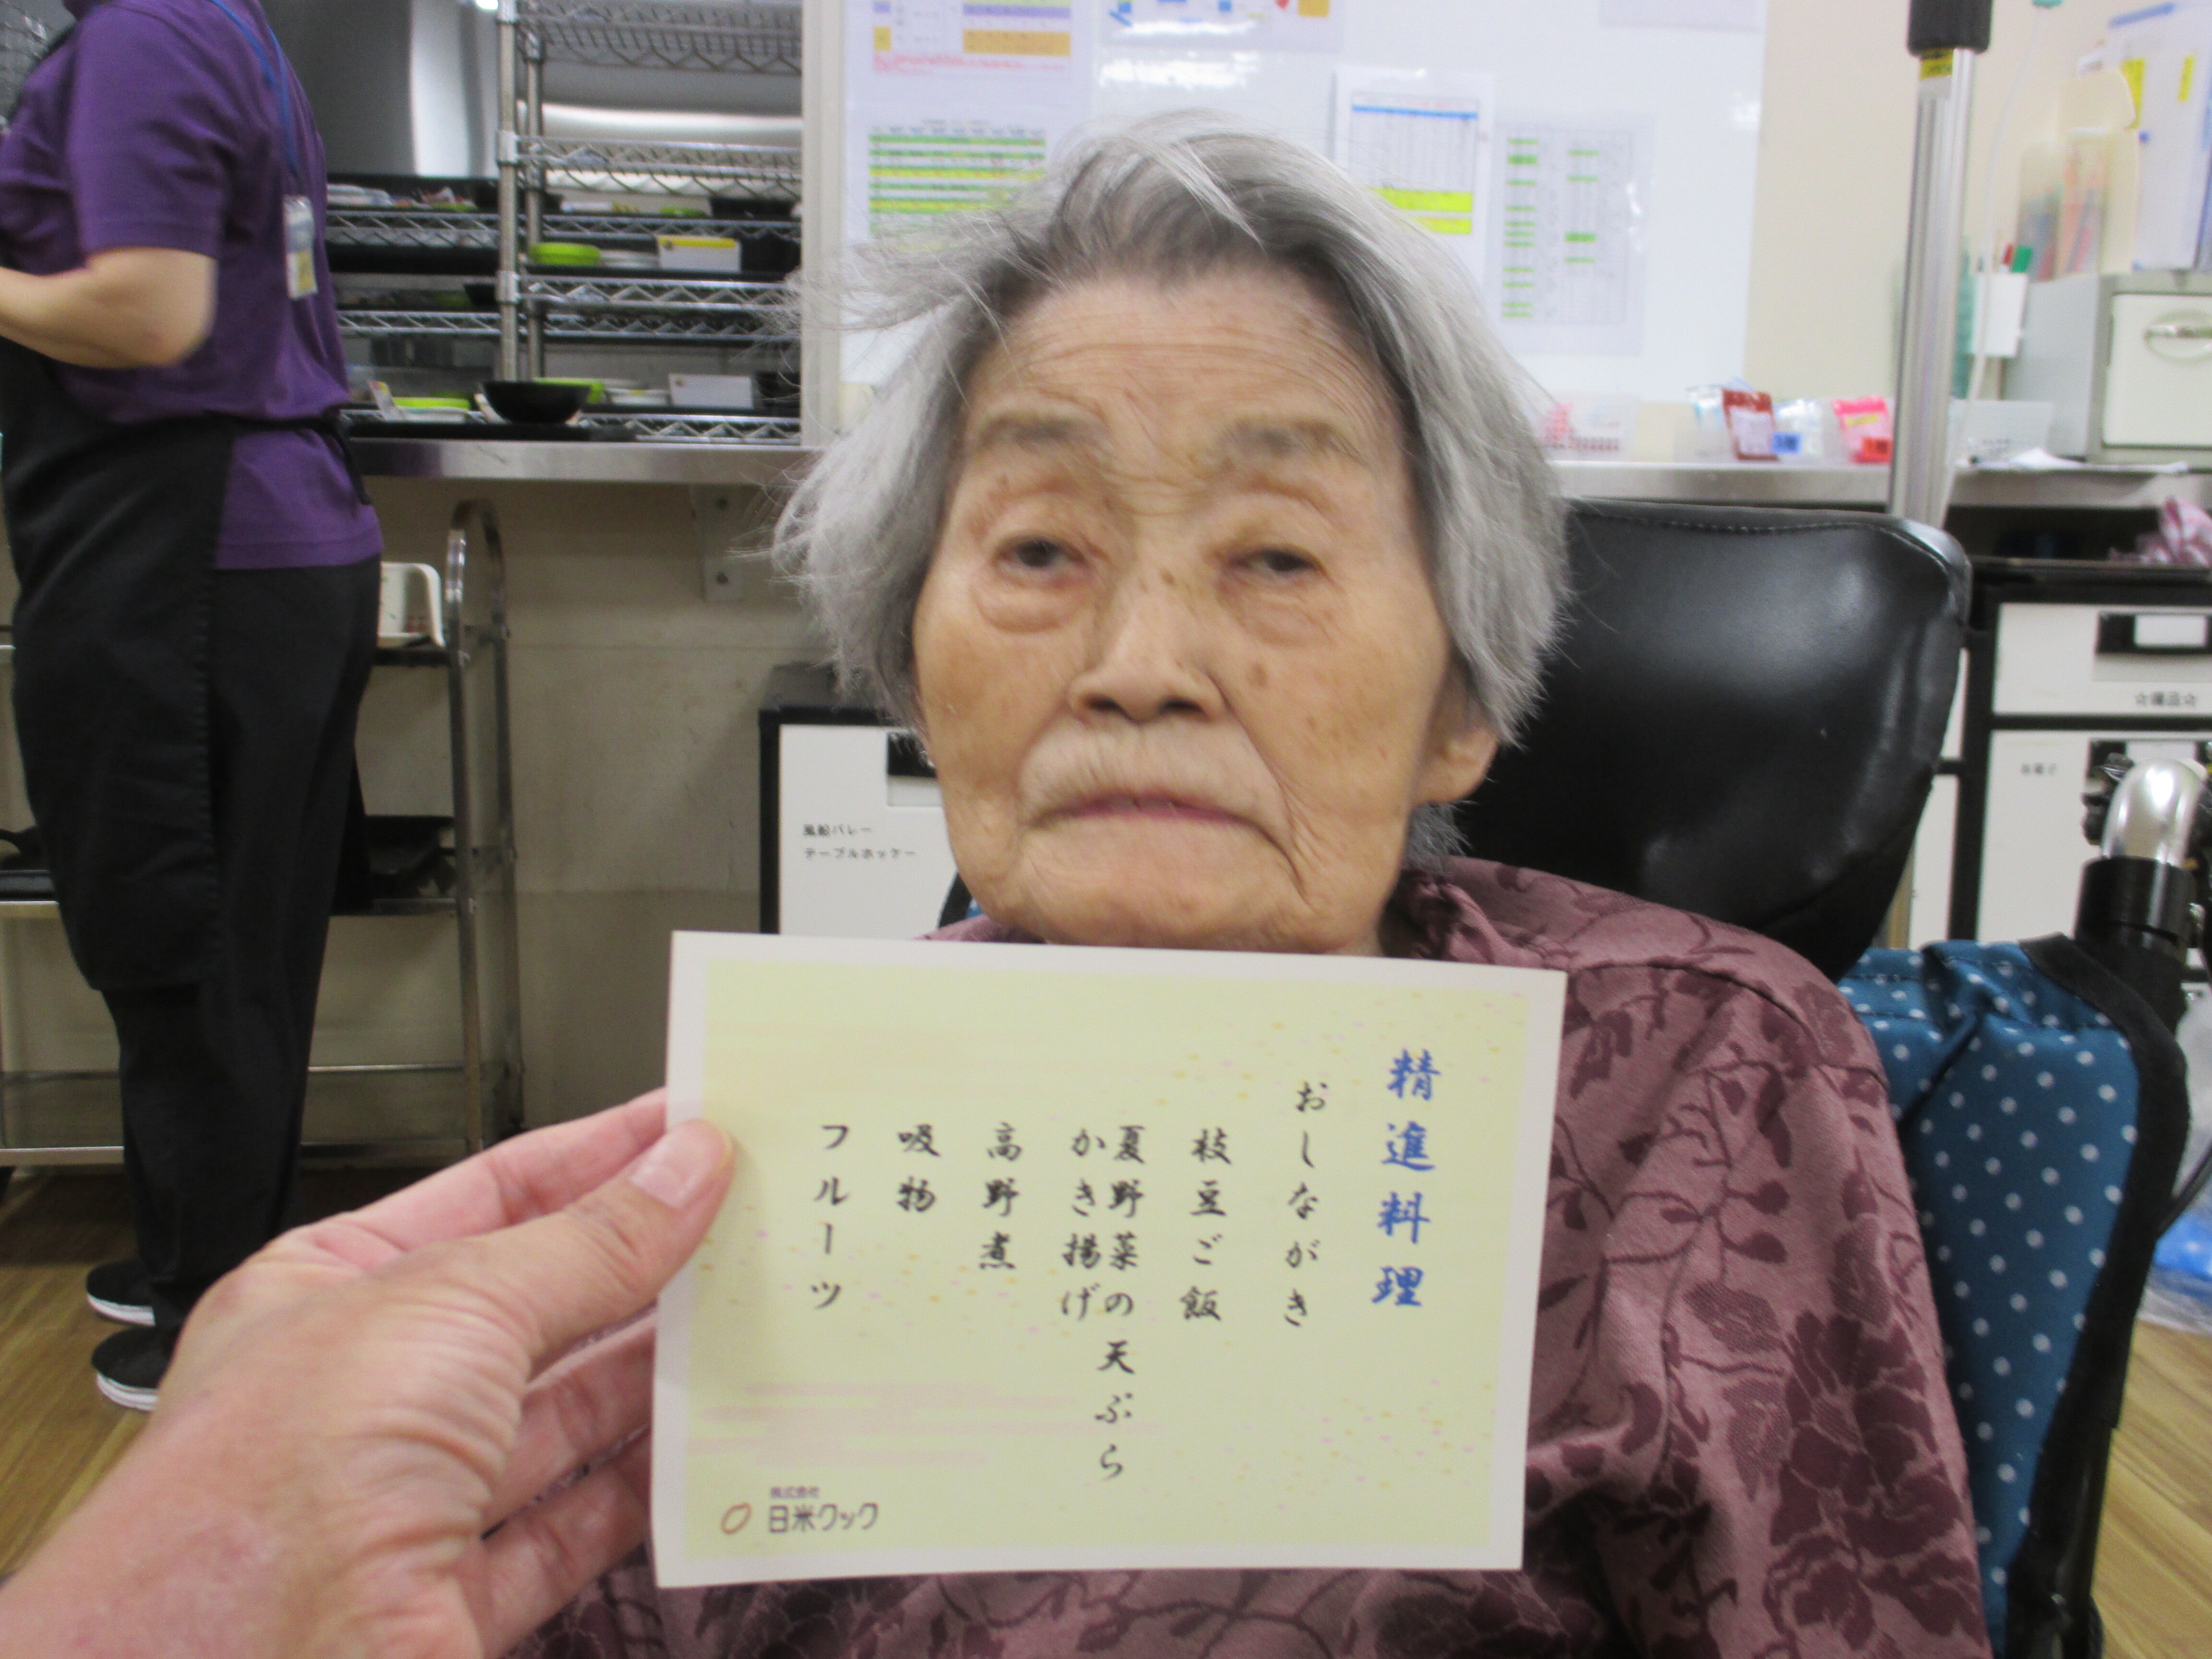 精進料理
おしながき
枝豆ご飯
夏野菜の天ぷら
かき揚げ
高野煮
吸物
フルーツ
株式会社
日米クック
風船バレー
テーブルホッケー